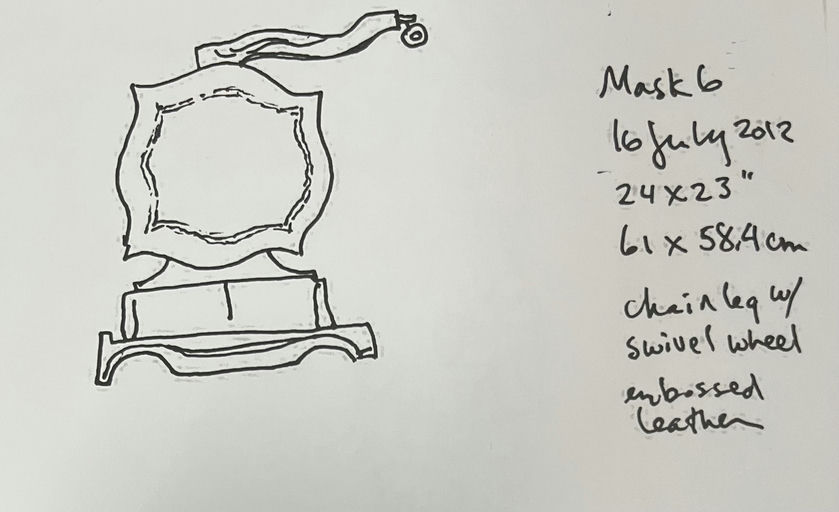 Mask 6
16 July 2012
24 x 23"
61 x 58.4 cm
chair leg w/
swivel wheel
embossed
leather